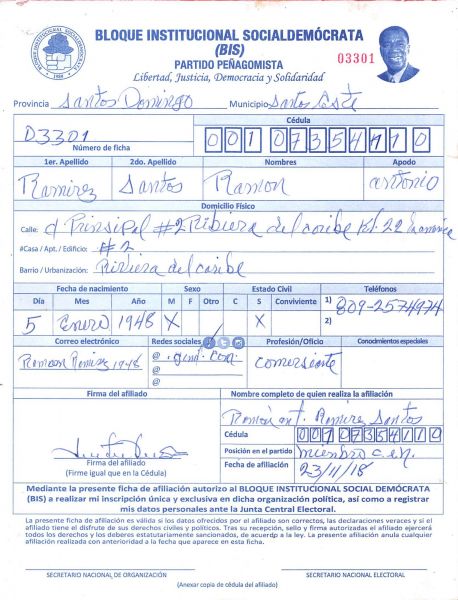 BLOQUE INSTITUCIONAL SOCIALDEMÓCRATA
(BIS)
PARTIDO PEÑAGOMISTA
Libertad, Justicia, Democracia y Solidaridad
03301
Provincia Santo Domingo Municipio Santo Este
D3301
Número de ficha
Cédula
001 0735411 0
1er. Apellido 2do. Apellido Nombres Apodo
Ramirez Santos Ramon antonio
Domicilio Físico
Calle: Principal #2 Ribiera del caribe Kl. 22
#Casa / Apt. / Edificio: #2
Barrio / Urbanización: Riviera del caribe
Fecha de nacimiento Sexo Estado Civil Teléfonos
Día Mes Año M F Otro C S Conviviente 1) 809-2574974
5 Enero 1948 X X 2)
Correo electrónico Redes sociales Profesión/Oficio Conocimientos especiales
Ramon Ramirez 1948 @ .com. comersiante
@
@
Firma del afiliado Nombre completo de quien realiza la afiliación
Ramón ant. Ramirez Santos
Cédula
Firma del afiliado
(Firme igual que en la Cédula)
Posición en el partido miembro c.e.n.
Fecha de afiliación 23/11/18
Mediante la presente ficha de afiliación autorizo al BLOQUE INSTITUCIONAL SOCIAL DEMÓCRATA
(BIS) a realizar mi inscripción única y exclusiva en dicha organización política, así como a registrar
mis datos personales ante la Junta Central Electoral.
La presente ficha de afiliación es válida si los datos ofrecidos por el afiliado son correctos, las declaraciones veraces y si el
afiliado tiene el disfrute de sus derechos civiles y políticos. Tras su recepción, sello y firma autorizadas el afiliado ejercerá
todos los derechos y los deberes estatutariamente sancionados, de acuerdp a la ley. La presente afiliación anula cualquier
afiliación realizada con anterioridad a la fecha que aparece en esta ficha.
SECRETARIO NACIONAL DE ORGANIZACIÓN SECRETARIO NACIONAL ELECTORAL
(Anexar copia de cédula del afiliado)